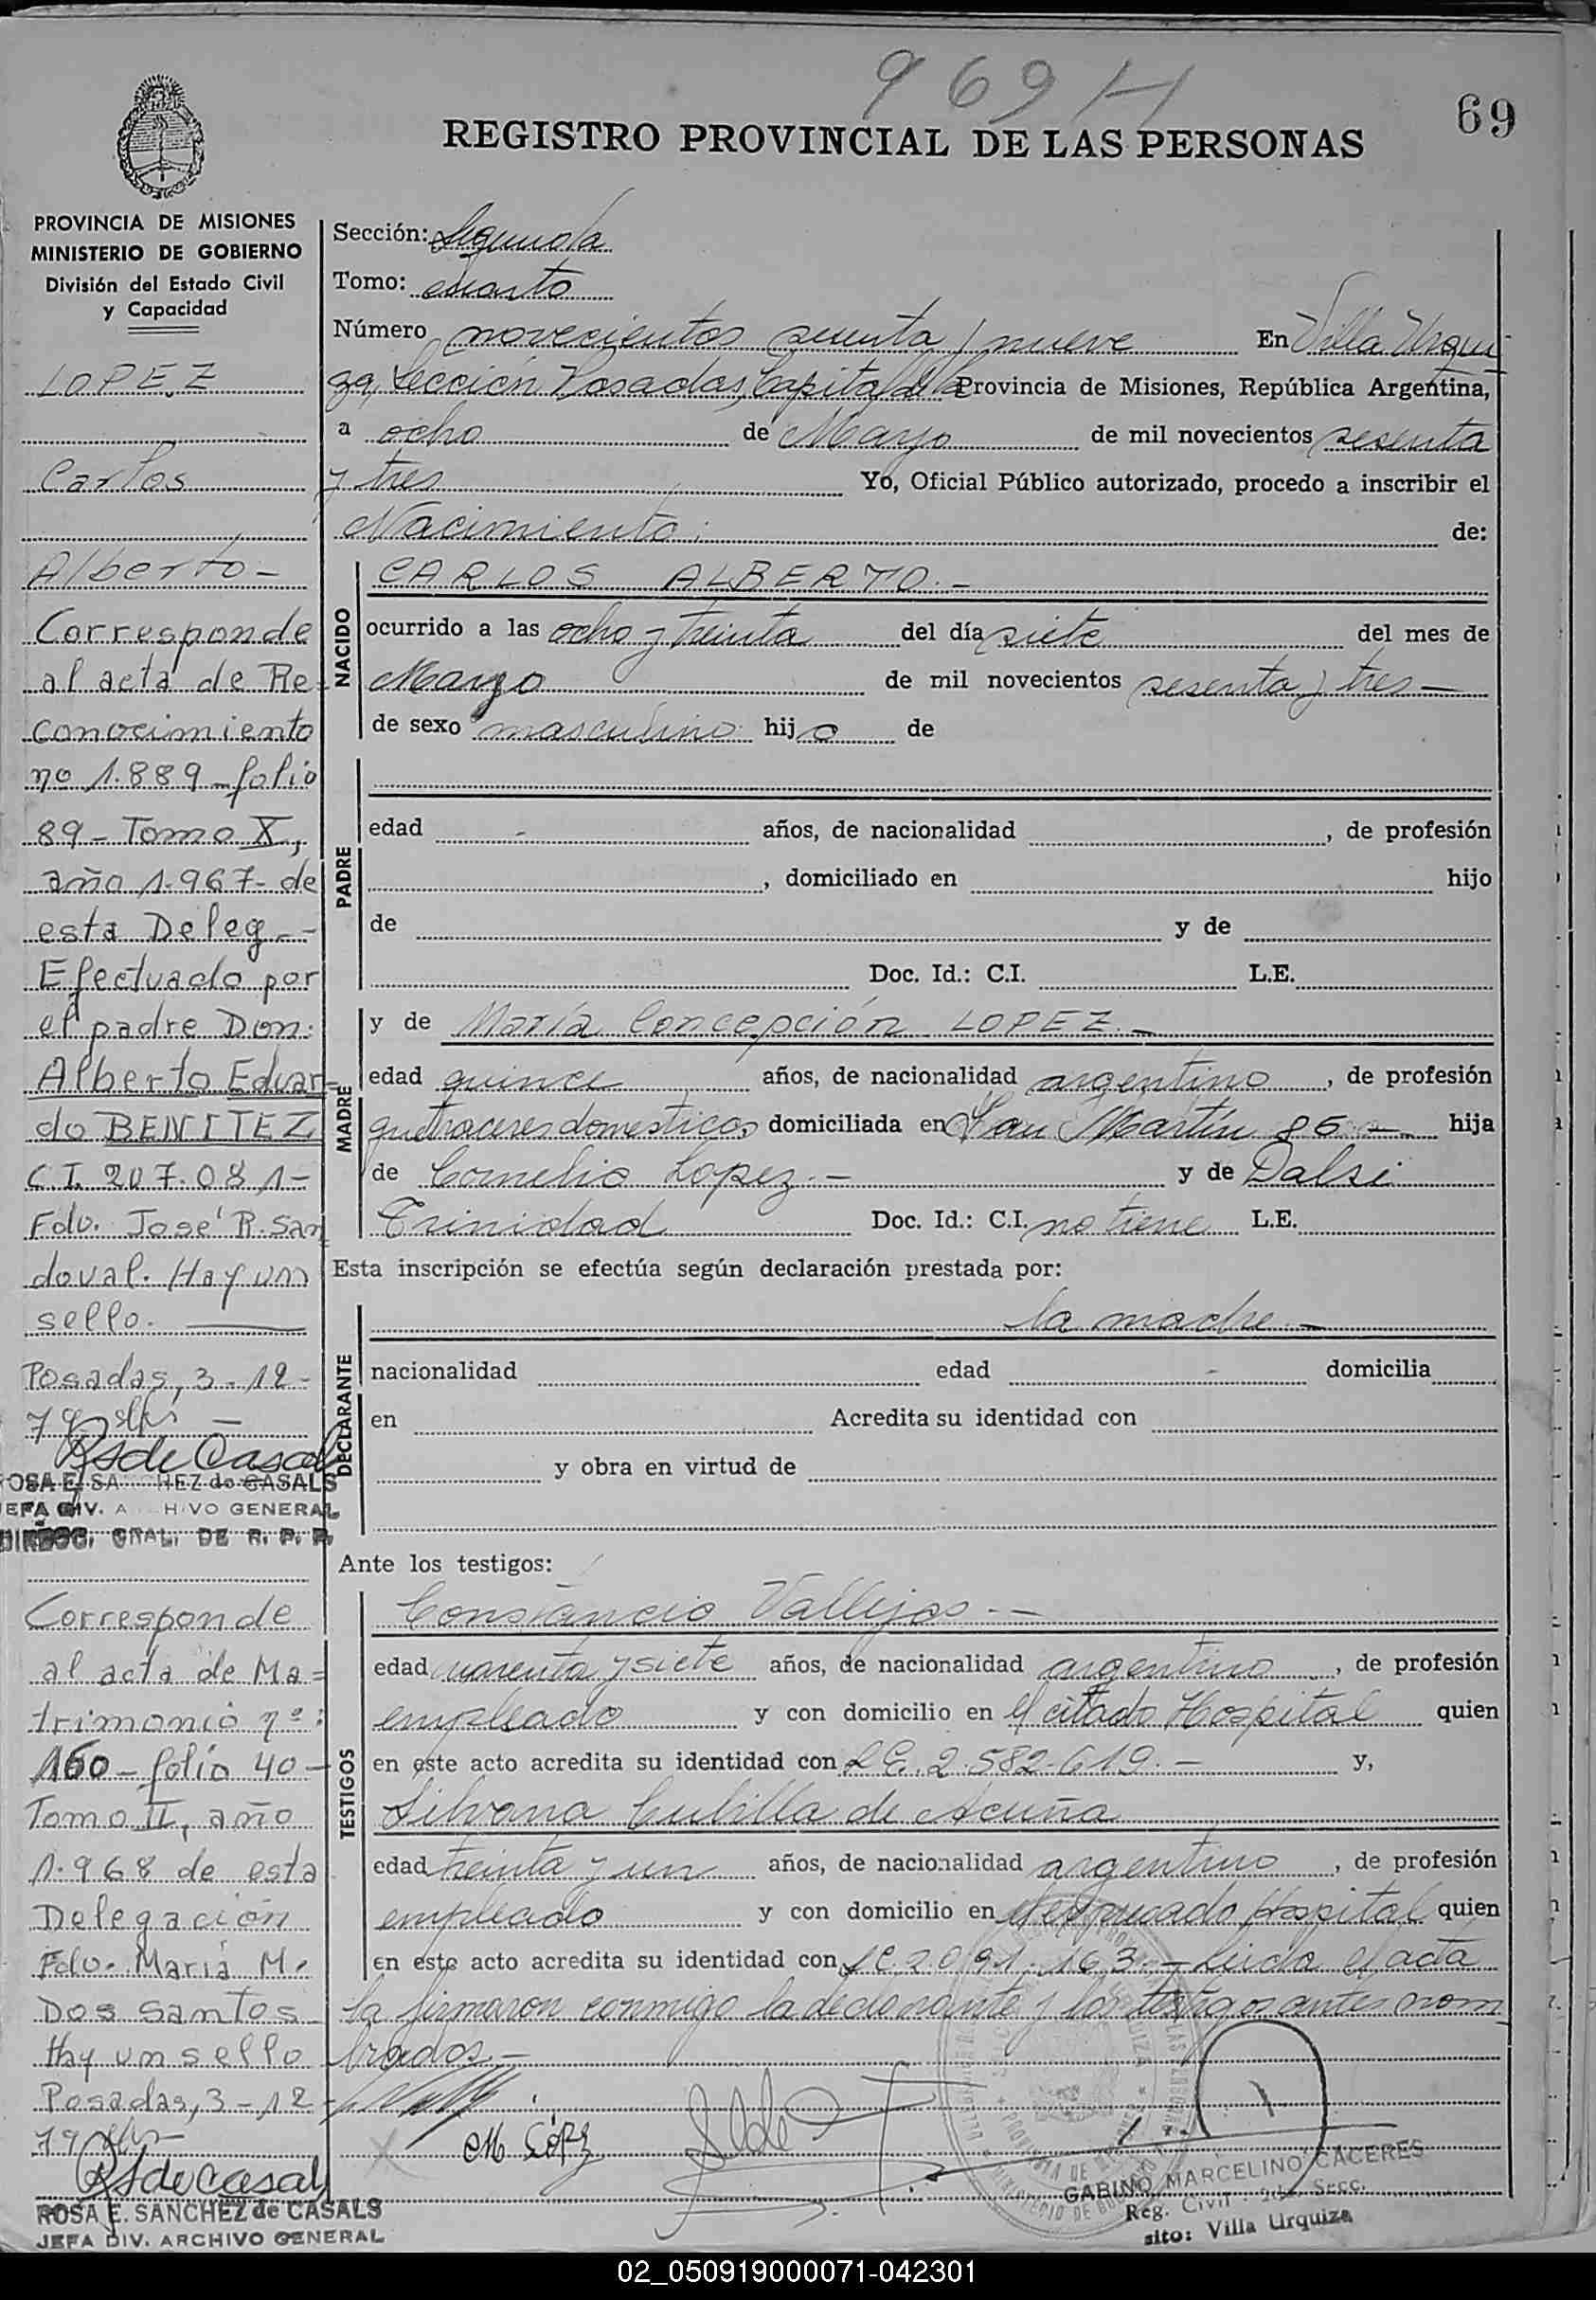 969 H
69
REGISTRO PROVINCIAL DE LAS PERSONAS
PROVINCIA DE MISIONES
MINISTERIO DE GOBIERNO
División del Estado Civil
y Capacidad
LOPEZ
Carlos
Alberto -
Corresponde
al acta de Re-
conocimiento
nº 1.889 - folio
89 - Tomo X,
año 1.967 - de
esta Deleg. -
Efectuado por
el padre Don:
Alberto Eduar-
do BENITEZ
C.I. 207.081 -
Fdo. José R. San
doval. Hay un
sello.
Posadas, 3 - 12 -
79
RSdeCasals
ROSA E. SANCHEZ de CASALS
JEFA DIV. ARCHIVO GENERAL
DIRECC. GRAL. DE R. P. P.
Corresponde
al acta de Ma=
trimonio nº:
160 - folio 40 -
Tomo II, año
1.968 de esta
Delegación
Fdo. María M.
Dos Santos
Hay un sello
Posadas, 3 - 12 -
79
RSdeCasals
ROSA E. SANCHEZ de CASALS
JEFA DIV. ARCHIVO GENERAL
Sección: Segunda
Tomo: cuarto
Número novecientos sesenta y nueve En Villa Urqui-
za, Sección Posadas, Capital de la Provincia de Misiones, República Argentina,
a ocho de Mayo de mil novecientos sesenta
y tres Yo, Oficial Público autorizado, procedo a inscribir el
Nacimiento: de:
NACIDO
CARLOS ALBERTO. -
ocurrido a las ocho y treinta del día siete del mes de
Marzo de mil novecientos sesenta y tres -
de sexo masculino hijo de
PADRE
edad - años, de nacionalidad , de profesión
, domiciliado en hijo
de y de
Doc. Id.: C.I. L.E.
MADRE
y de María Concepción LOPEZ. -
edad quince años, de nacionalidad argentino , de profesión
quehaceres domesticos, domiciliada en San Martín 85 - hija
de Cornelio Lopez. - y de Dalsi
Trinidad Doc. Id.: C.I. no tiene L.E.
Esta inscripción se efectúa según declaración prestada por:
DECLARANTE
la madre. -
nacionalidad edad - domicilia
en Acredita su identidad con
y obra en virtud de
Ante los testigos:
TESTIGOS
Constancio Vallejos. -
edad cuarenta y siete años, de nacionalidad argentino , de profesión
empleado y con domicilio en el citado Hospital quien
en este acto acredita su identidad con L.E. 2.582.619. - y,
Silvana Cubilla de Acuña
edad treinta y un años, de nacionalidad argentino , de profesión
empleado y con domicilio en el expresado Hospital quien
en este acto acredita su identidad con LC. 2.091.163. - Leida el acta
la firmaron conmigo la declarante y los testigos antes nom
brados. -
M López
GABINO MARCELINO CACERES
Reg. Civil - 2da. Secc.
sito: Villa Urquiza
02_050919000071-042301